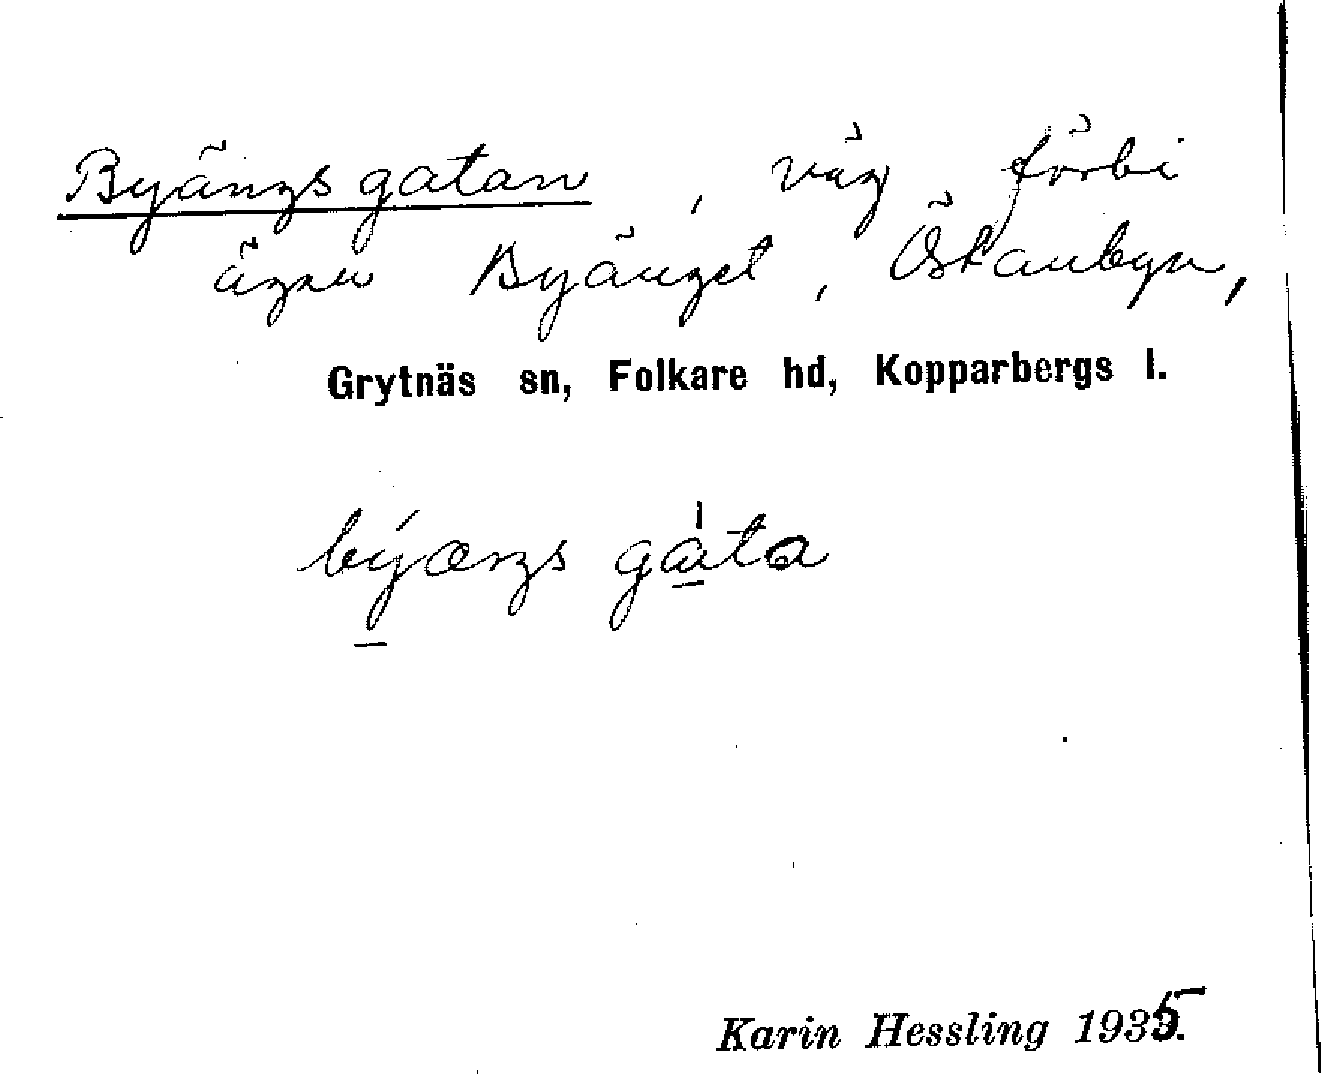 Byängsgatan, väg förbi
ägan Byänget, Östanbyn,
Grytnäs sn, Folkare hd, Kopparbergs l.
býæŋs gàta
Karin Hessling 1935.